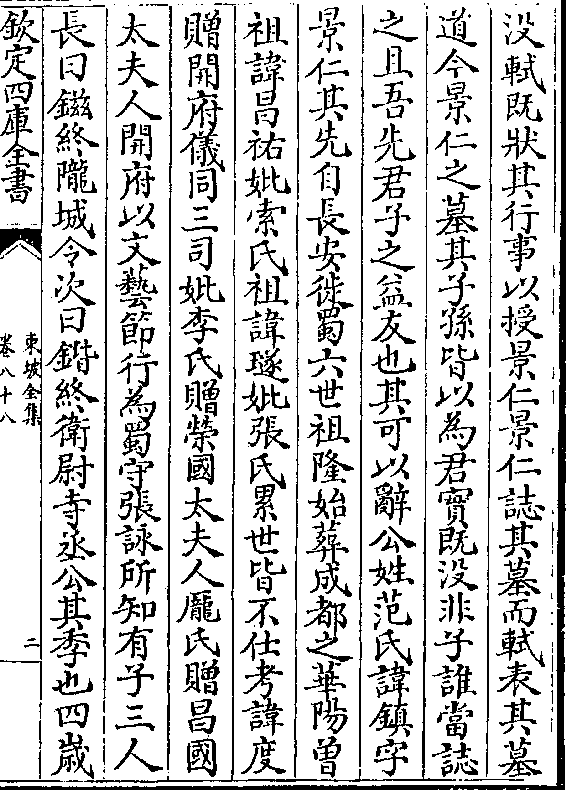 没軾既狀其行事以授景仁景仁誌其墓而軾表其墓
道今景仁之墓其子孫皆以為君實既没非子誰當誌
之且吾先君子之益友也其可以辭公姓范氏諱鎮字
景仁其先自長安徙蜀六世祖隆始葬成都之華陽曾
祖諱昌祐妣索氏祖諱璲妣張氏累世皆不仕考諱度
贈開府儀同三司妣李氏贈榮國太夫人龎氏贈昌國
太夫人開府以文藝節行為蜀守張詠所知有子三人
長曰鎡終隴城令次曰鍇終衛尉寺丞公其季也四歲
欽定四庫全書
東坡全集
卷八十八
二